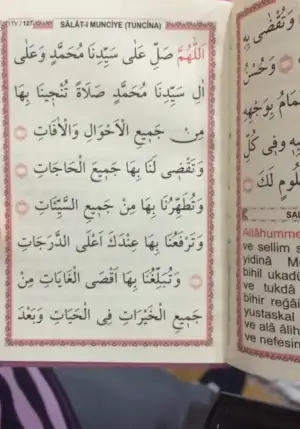 SALÂT-I MUNCİYE (TUNCİNA)
اَللّٰهُمَّ صَلِّ عَلٰى سَيِّدِنَا مُحَمَّدٍ وَعَلٰى
اٰلِ سَيِّدِنَا مُحَمَّدٍ صَلَاةً تُنْجِينَا بِهَا
مِنْ جَمِيعِ الْاَحْوَالِ وَالْاٰفَاتِ
وَتَقْضِى لَنَا بِهَا جَمِيعَ الْحَاجَاتِ
وَتُطَهِّرُنَا بِهَا مِنْ جَمِيعِ السَّيِّئَاتِ
وَتَرْفَعُنَا بِهَا عِنْدَكَ اَعْلَى الدَّرَجَاتِ
وَتُبَلِّغُنَا بِهَا اَقْصَى الْغَايَاتِ مِنْ
جَمِيعِ الْخَيْرَاتِ فِى الْحَيَاتِ وَبَعْدَ
وَتُقْضٰى بِهِ
وَحُسْنُ
بِوَجْهِهِ
وَفِى كُلِّ
لَكَ
Allâhumme
ve sellim
yidinâ
bihil
ve tukdâ
bihir
yustaskal
ve alâ
ve